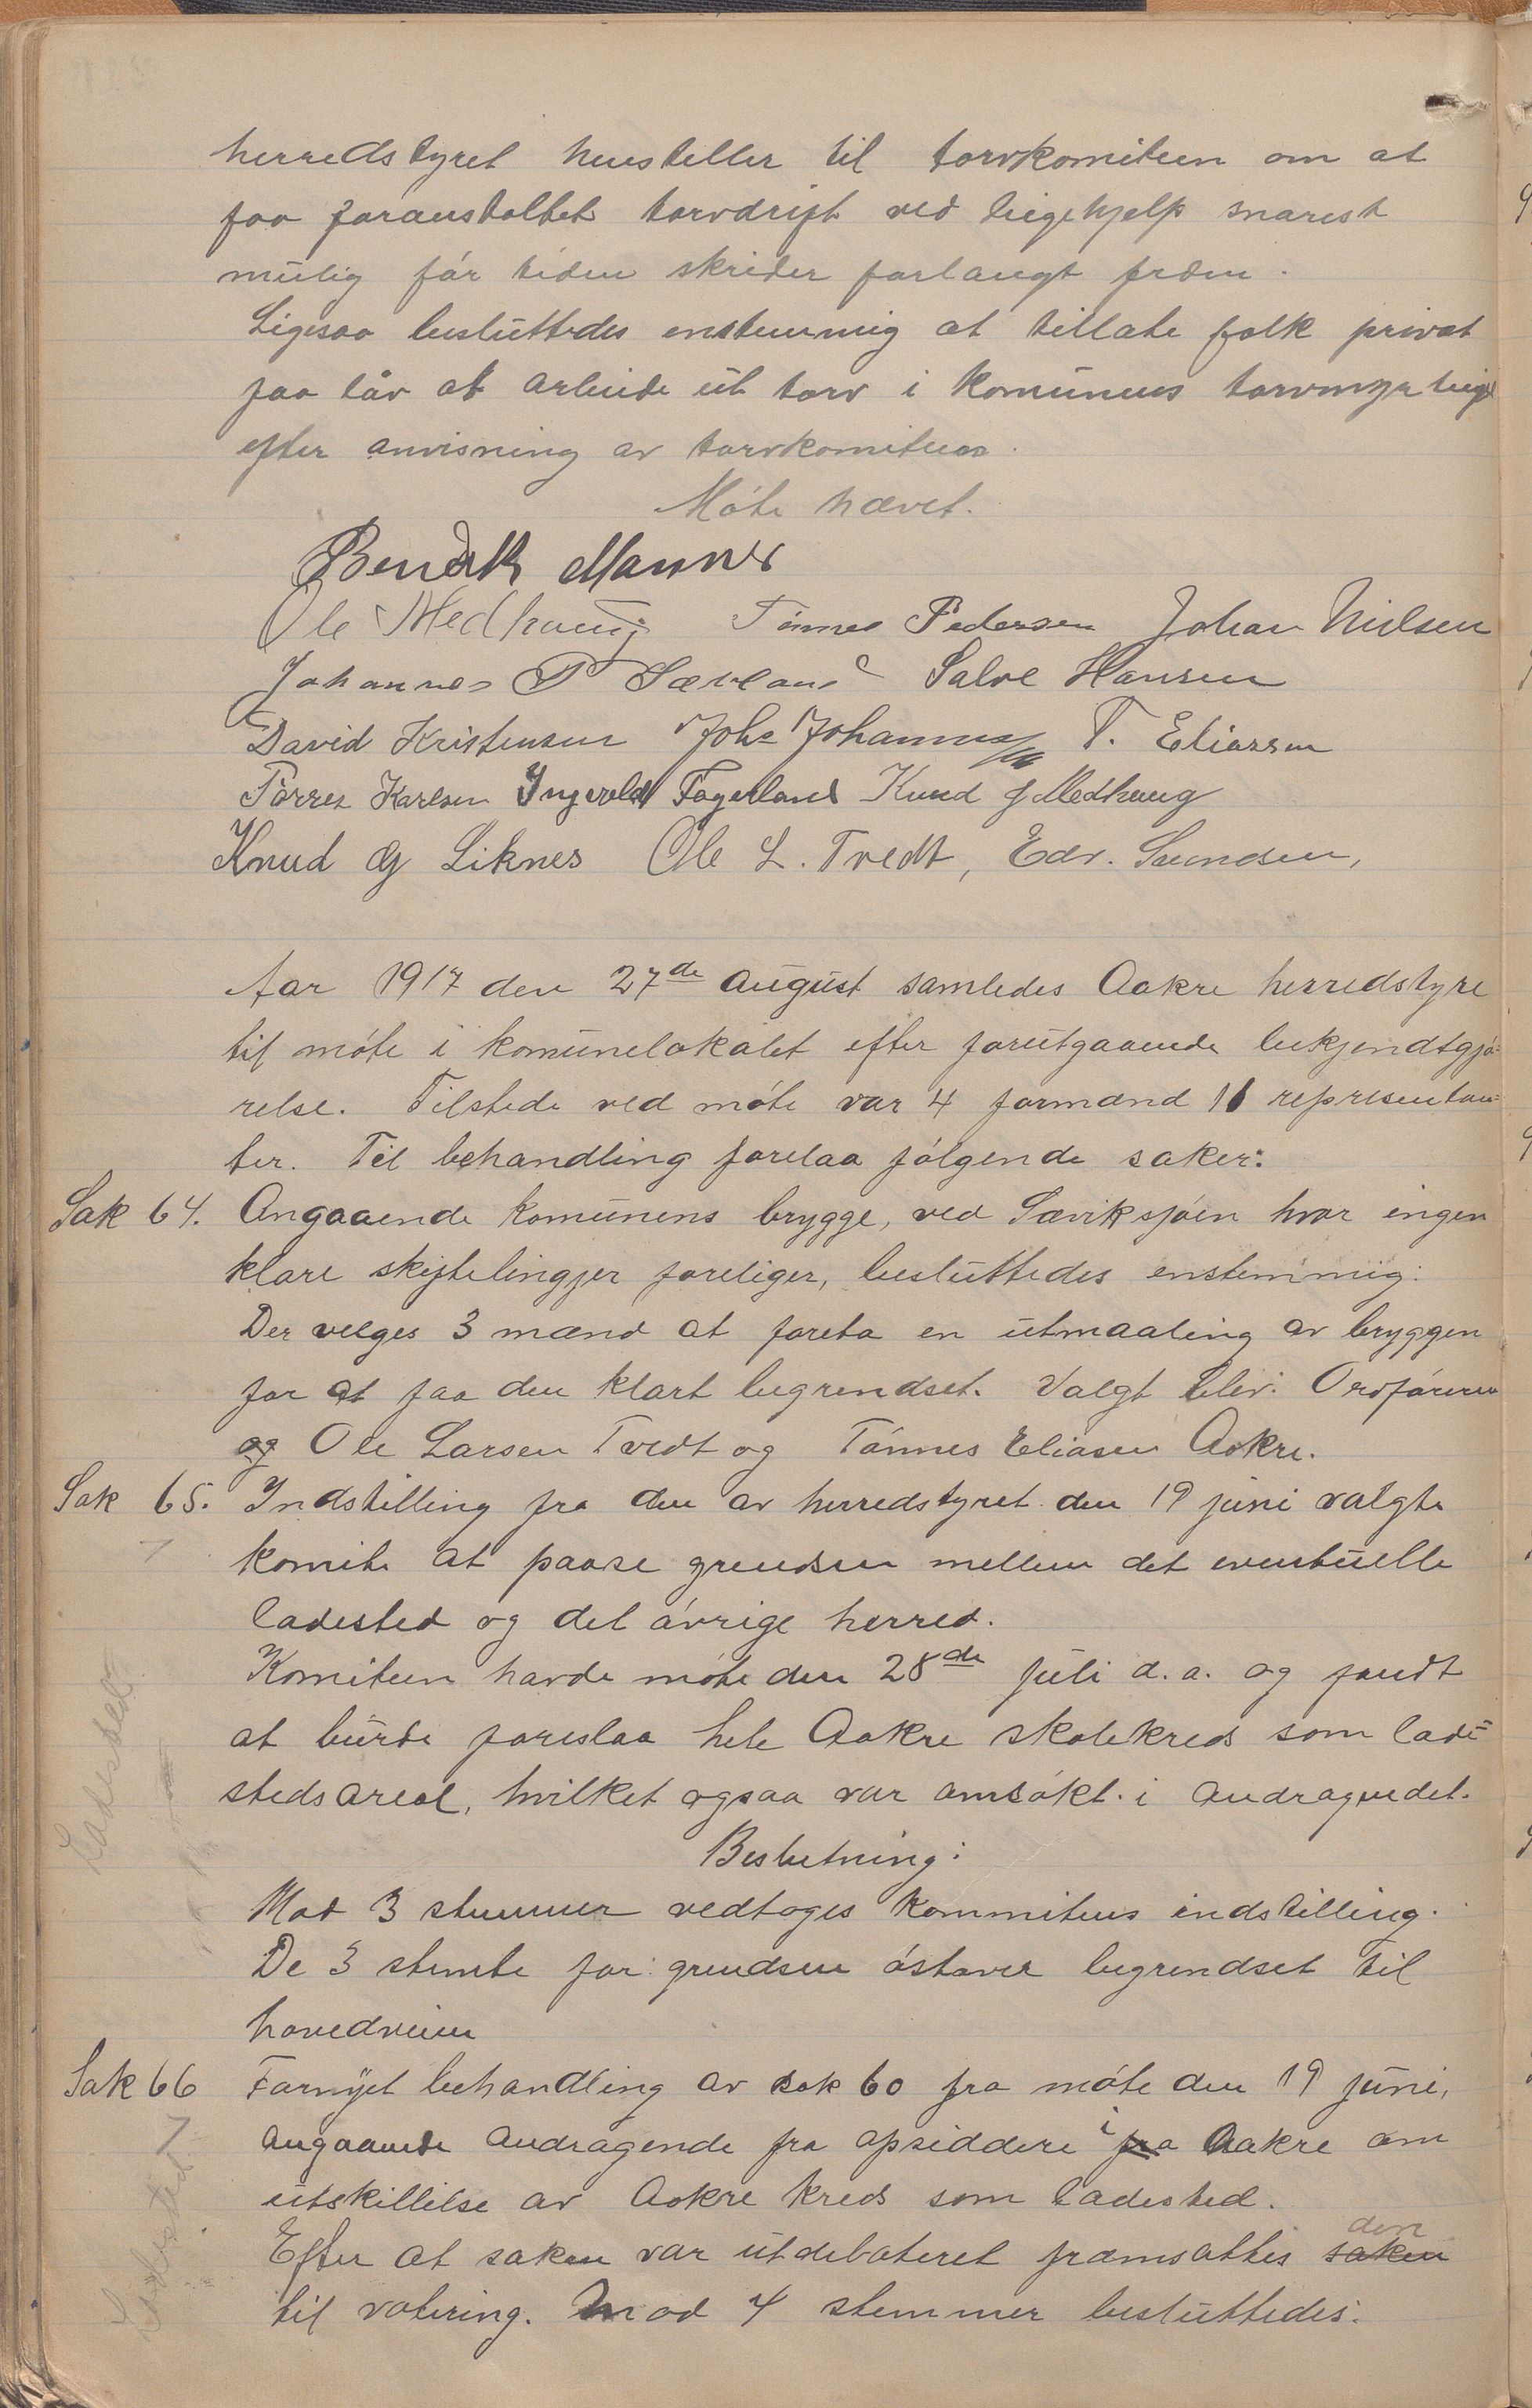 herredstyret henstiller til torvkomiteen om at
faa foranstaltet torvdrift ved leigehjelp snarest
mulig før tiden skrider forlangt frem.
Ligesaa besluttedes enstemmig at tillate folk privat
faa lov at arbeide ut torv i komunens torvmyr
efter anvisning av torvkomiteen.
Møte hævet.
Bendik Mannes
Ole Medhaug Tønnes Pedersen Johan Nielsen
Johannes P Sævland Salve Hansen
David Kristensen Johs Johannessen T. Eliassen
Tørres Karlsen Ingevald Fagerland Knud J Medhaug
Knud G Liknes Ole L. Tvedt, Edv. Simonsen,
Aar 1917 den 27de august samledes Aakre herredstyre
til møte i komunelokalet efter forutgaaende bekjendtgjø-
relse. Tilstede ved møte var 4 formænd 11 representan-
ter. Til behandling forelaa følgende saker:
Sak 64. Angaaende komunens brygge, ved Sæviksjøen hvor ingen
klare skjøtelingjer foreliger, besluttedes enstemmig:
Der velges 3 mænd at foreta en utmaaling av bryggen
for at faa den klart begrendset. Valgt blev: Ordføreren
og Ole Larsen Tvedt og Tønnes Eliasen Aakre.
Sak 65. Indstilling fra den av herredstyret den 19 juni valgte
komite at paase grendsen mellem det eventuelle
ladested og det øvrige herred.
Komiteen havde møte den 28de juli d.a. og fandt
at burde foreslaa hele Aakre skolekreds som lade-
stedsareal, hvilket ogsaa var omsøkt i andragendet.
Beslutning:
Mot 3 stemmer vedtoges kommiteens indstilling.
De 3 stemte for: grendsen østover begrendset til
hovedveien
Ladested
Sak 66 Fornyet behandling av sak 60 fra møte den 19 juni,
angaaende andragende fra opsiddere i fra Aakre om
utskillelse av Aakre kreds som ladested.
Efter at saken var utdebateret fremsattes saken den
til votering. Mod 4 stemmer besluttedes:
Ladested